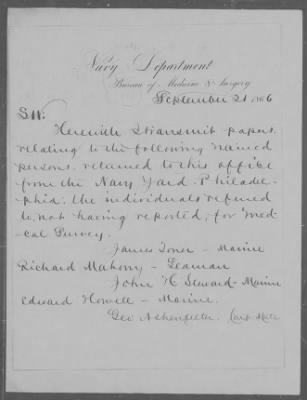 Navy Department
Bureau of Medicine & Surgery
September 21 1866
Sir:
Herewith I transmit papers
relating to the following named
persons, returned to this office
from the Navy Yard Philadel-
phia; the individuals referred
to, not having reported, for Medi-
cal Survey.
James Toner - Marine
Richard Mahony - Seaman
John H Steward - Marine
Edward Howell - Marine.
Geo